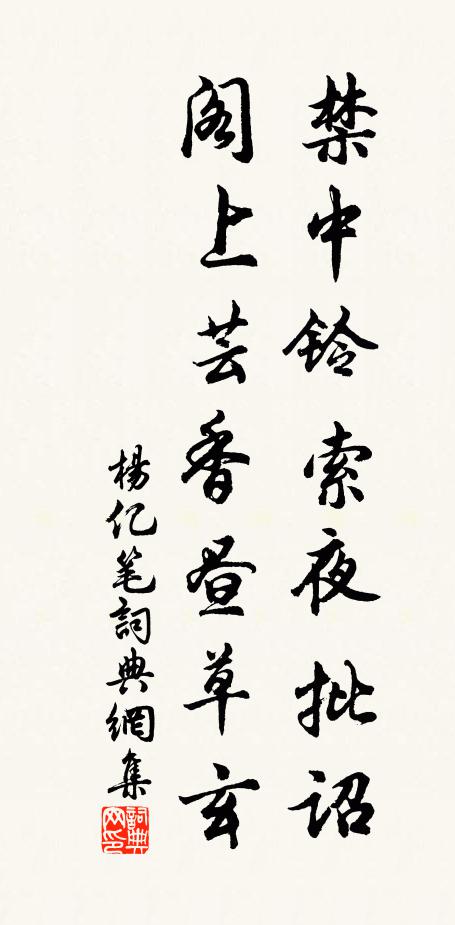 禁中铃索夜批诏
阁上芸香昼草玄
杨亿笔詞典網集
詞典网印